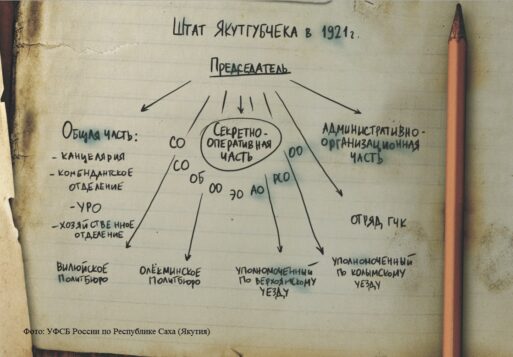 Штат Якутгубчека в 1921 г.
Председатель
Общая часть:
- канцелярия
- комендантское
отделение
- УРО
- хозяйственное
отделение
Секретно-
оперативная
часть
СО
СО
ОБ
ОО
ЭО
АО
РСО
ОО
Административно-
организационная
часть
Отряд ГЧК
Вилюйское
Политбюро
Олёкминское
Политбюро
Уполномоченный
по Верхоянскому
уезду
Уполномоченный
по Колымскому
уезду
Фото: УФСБ России по Республике Саха (Якутия)